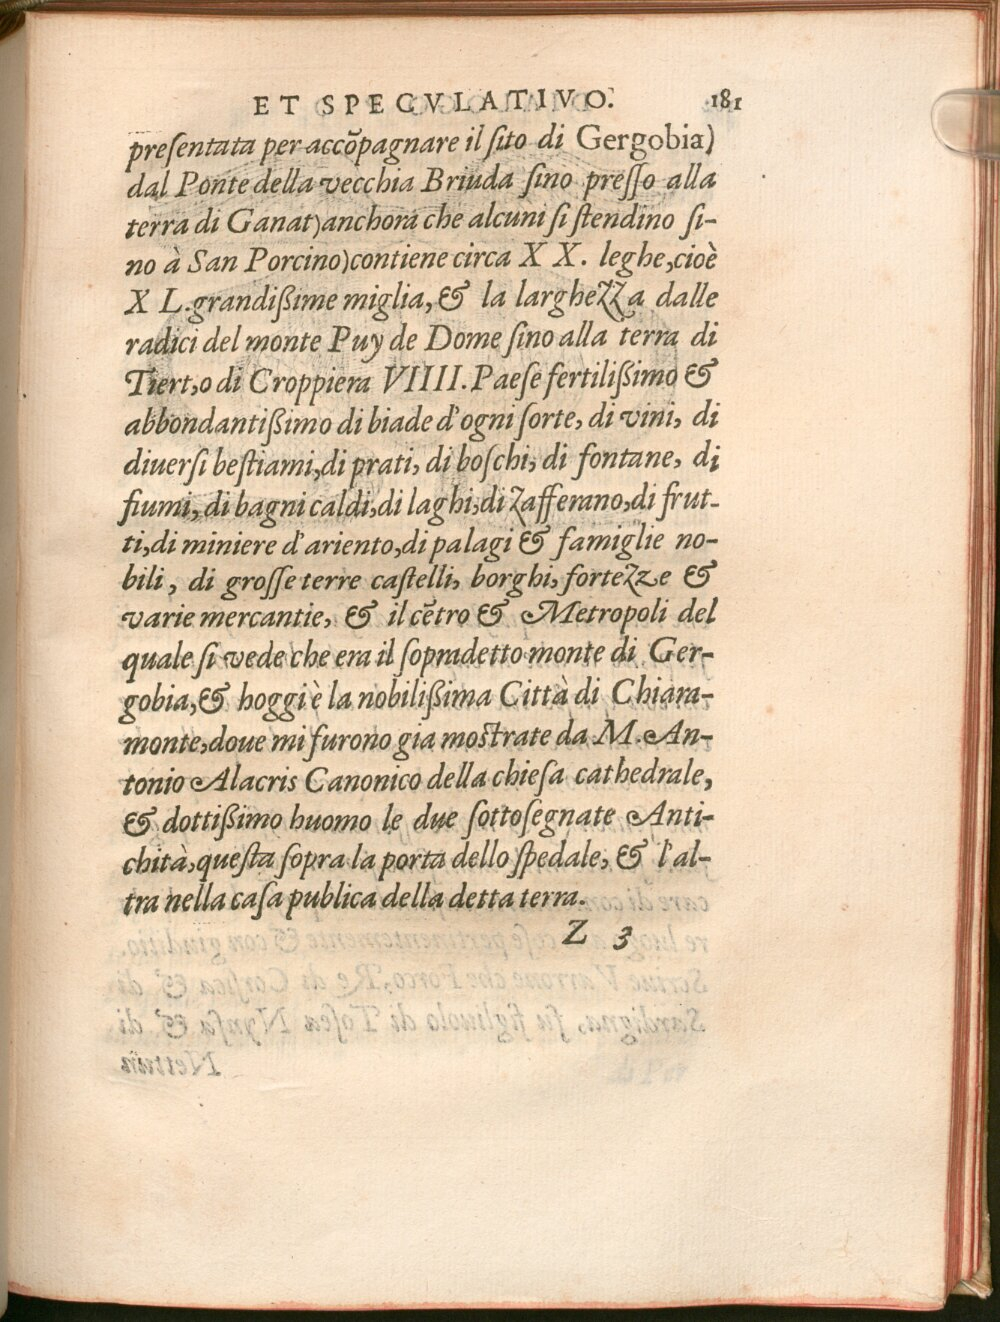 ET SPECVLATIVO. 181
presentata per accõpagnare il sito di Gergobia)
dal Ponte della vecchia Briuda sino presso alla
terra di Ganat)anchora che alcuni si stendino si-
no à San Porcino)contiene circa X X. leghe,cioè
X L.grandißime miglia,& la larghezza dalle
radici del monte Puy de Dome sino alla terra di
Tiert,o di Croppiera VIIII.Paese fertilißimo &
abbondantißimo di biade d'ogni sorte, di vini, di
diuersi bestiami,di prati, di boschi, di fontane, di
fiumi, di bagni caldi,di laghi,di zafferano,di frut-
ti,di miniere d'ariento,di palagi & famiglie no-
bili, di grosse terre castelli, borghi, fortezze &
varie mercantie, & il cẽtro & Metropoli del
quale si vede che era il sopradetto monte di Ger-
gobia,& hoggi è la nobilißima Città di Chiara-
monte,doue mi furono gia mostrate da M. An-
tonio Alacris Canonico della chiesa cathedrale,
& dottißimo huomo le due sottosegnate Anti-
chità,questa sopra la porta dello spedale, & l'al-
tra nella casa publica della detta terra.
Z 3